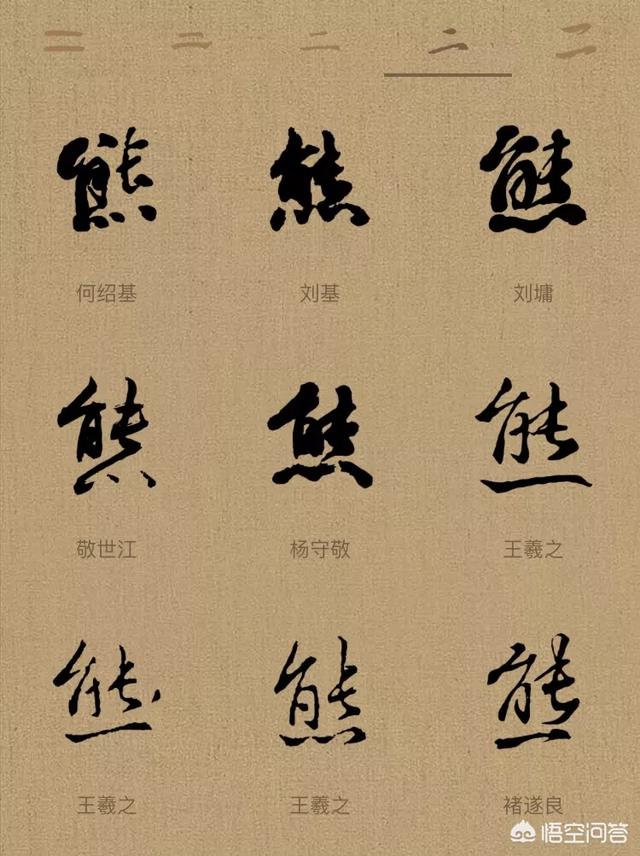 二 二 二 二 二
熊 熊 熊
何绍基 刘基 刘墉
熊 熊 熊
敬世江 杨守敬 王羲之
熊 熊 熊
王羲之 王羲之 褚遂良
悟空问答